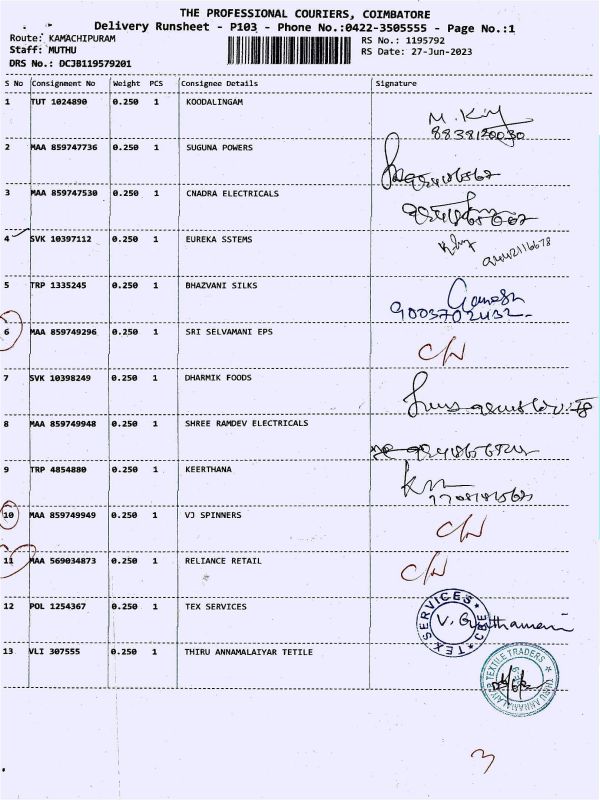 THE PROFESSIONAL COURIERS, COIMBATORE
Delivery Runsheet - P103 - Phone No.:0422-3505555 - Page No.:1
Route: KAMACHIPURAM RS No.: 1195792
Staff: MUTHU RS Date: 27-Jun-2023
DRS No.: DCJB119579201
S No Consignment No Weight PCS Consignee Details Signature
1 TUT 1024890 0.250 1 KOODALINGAM
8838120030
2 MAA 859747736 0.250 1 SUGUNA POWERS
3 MAA 859747530 0.250 1 CNADRA ELECTRICALS
4 SVK 10397112 0.250 1 EUREKA SSTEMS
5 TRP 1335245 0.250 1 BHAZVANI SILKS Ganesh
9003702432
6 MAA 859749296 0.250 1 SRI SELVAMANI EPS C/N
7 SVK 10398249 0.250 1 DHARMIK FOODS
8 MAA 859749948 0.250 1 SHREE RAMDEV ELECTRICALS
9 TRP 4854880 0.250 1 KEERTHANA
10 MAA 859749949 0.250 1 VJ SPINNERS C/N
11 MAA 569034873 0.250 1 RELIANCE RETAIL C/N
12 POL 1254367 0.250 1 TEX SERVICES TEX SERVICES CBE
13 VLI 307555 0.250 1 THIRU ANNAMALAIYAR TETILE
THIRU ANNAMALAIYER TEXTILE TRADERS
3